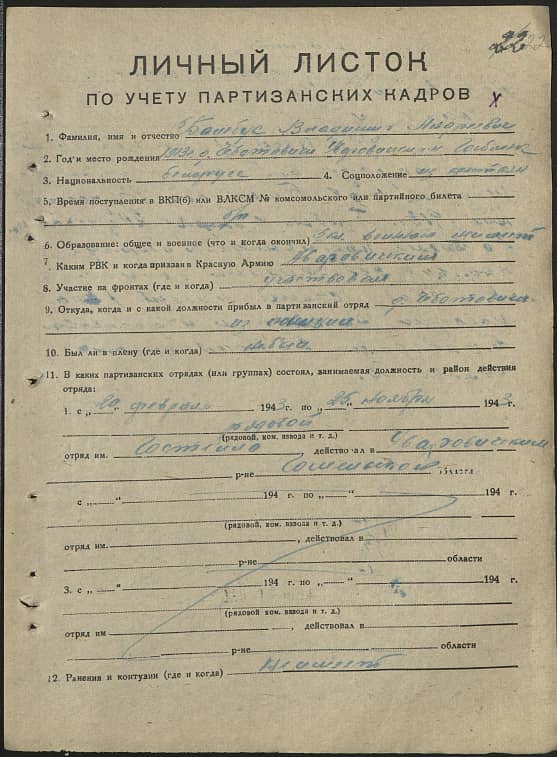 22
ЛИЧНЫЙ ЛИСТОК
ПО УЧЕТУ ПАРТИЗАНСКИХ КАДРОВ
1. Фамилия, имя и отчество Владимир
2. Год и место рождения 1913 г.
3. Национальность белорус 4. Соцположение из крестьян
5. Время поступления в ВКП(б) или ВЛКСМ № комсомольского или партийного билета
б/п
6. Образование: общее и военное (что и когда окончил) 5 кл.
7. Каким РВК и когда призван в Красную Армию Уваровичским
8. Участие на фронтах (где и когда) участвовал
9. Откуда, когда и с какой должности прибыл в партизанский отряд
10. Был ли в плену (где и когда) не был
11. В каких партизанских отрядах (или группах) состоял, занимаемая должность и район действия
отряда:
1. с „20 февраля 1943 г. по „25" ноября 1943 г.
рядовой
(рядовой, ком. взвода и т. д.)
отряд им. , действовал в Уваровичском
р-не Гомельской области
с „ —— " 194 г. по „ —— " 194 г.
(рядовой, ком. взвода и т. д.)
отряд им. , действовал в
р-не области
3. с „ —— " 194 г. по „ —— " 194 г.
(рядовой, ком. взвода и т. д.)
отряд им , действовал в
р-не области
12. Ранения и контузии (где и когда)